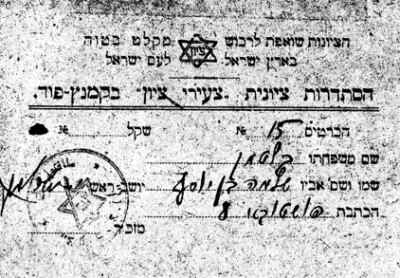 הציונות שואפת לרכוש מקלט בטוח
ציון
בארץ ישראל לעם ישראל
הסתדרות ציונית „צעירי ציון” בקמנץ-פוד.
הכרטיס № 15 שקל №
שם משפחתו
שמו ושם אביו שלמה בן יוסף יושב ראש
הכתבת 8
מזכיר